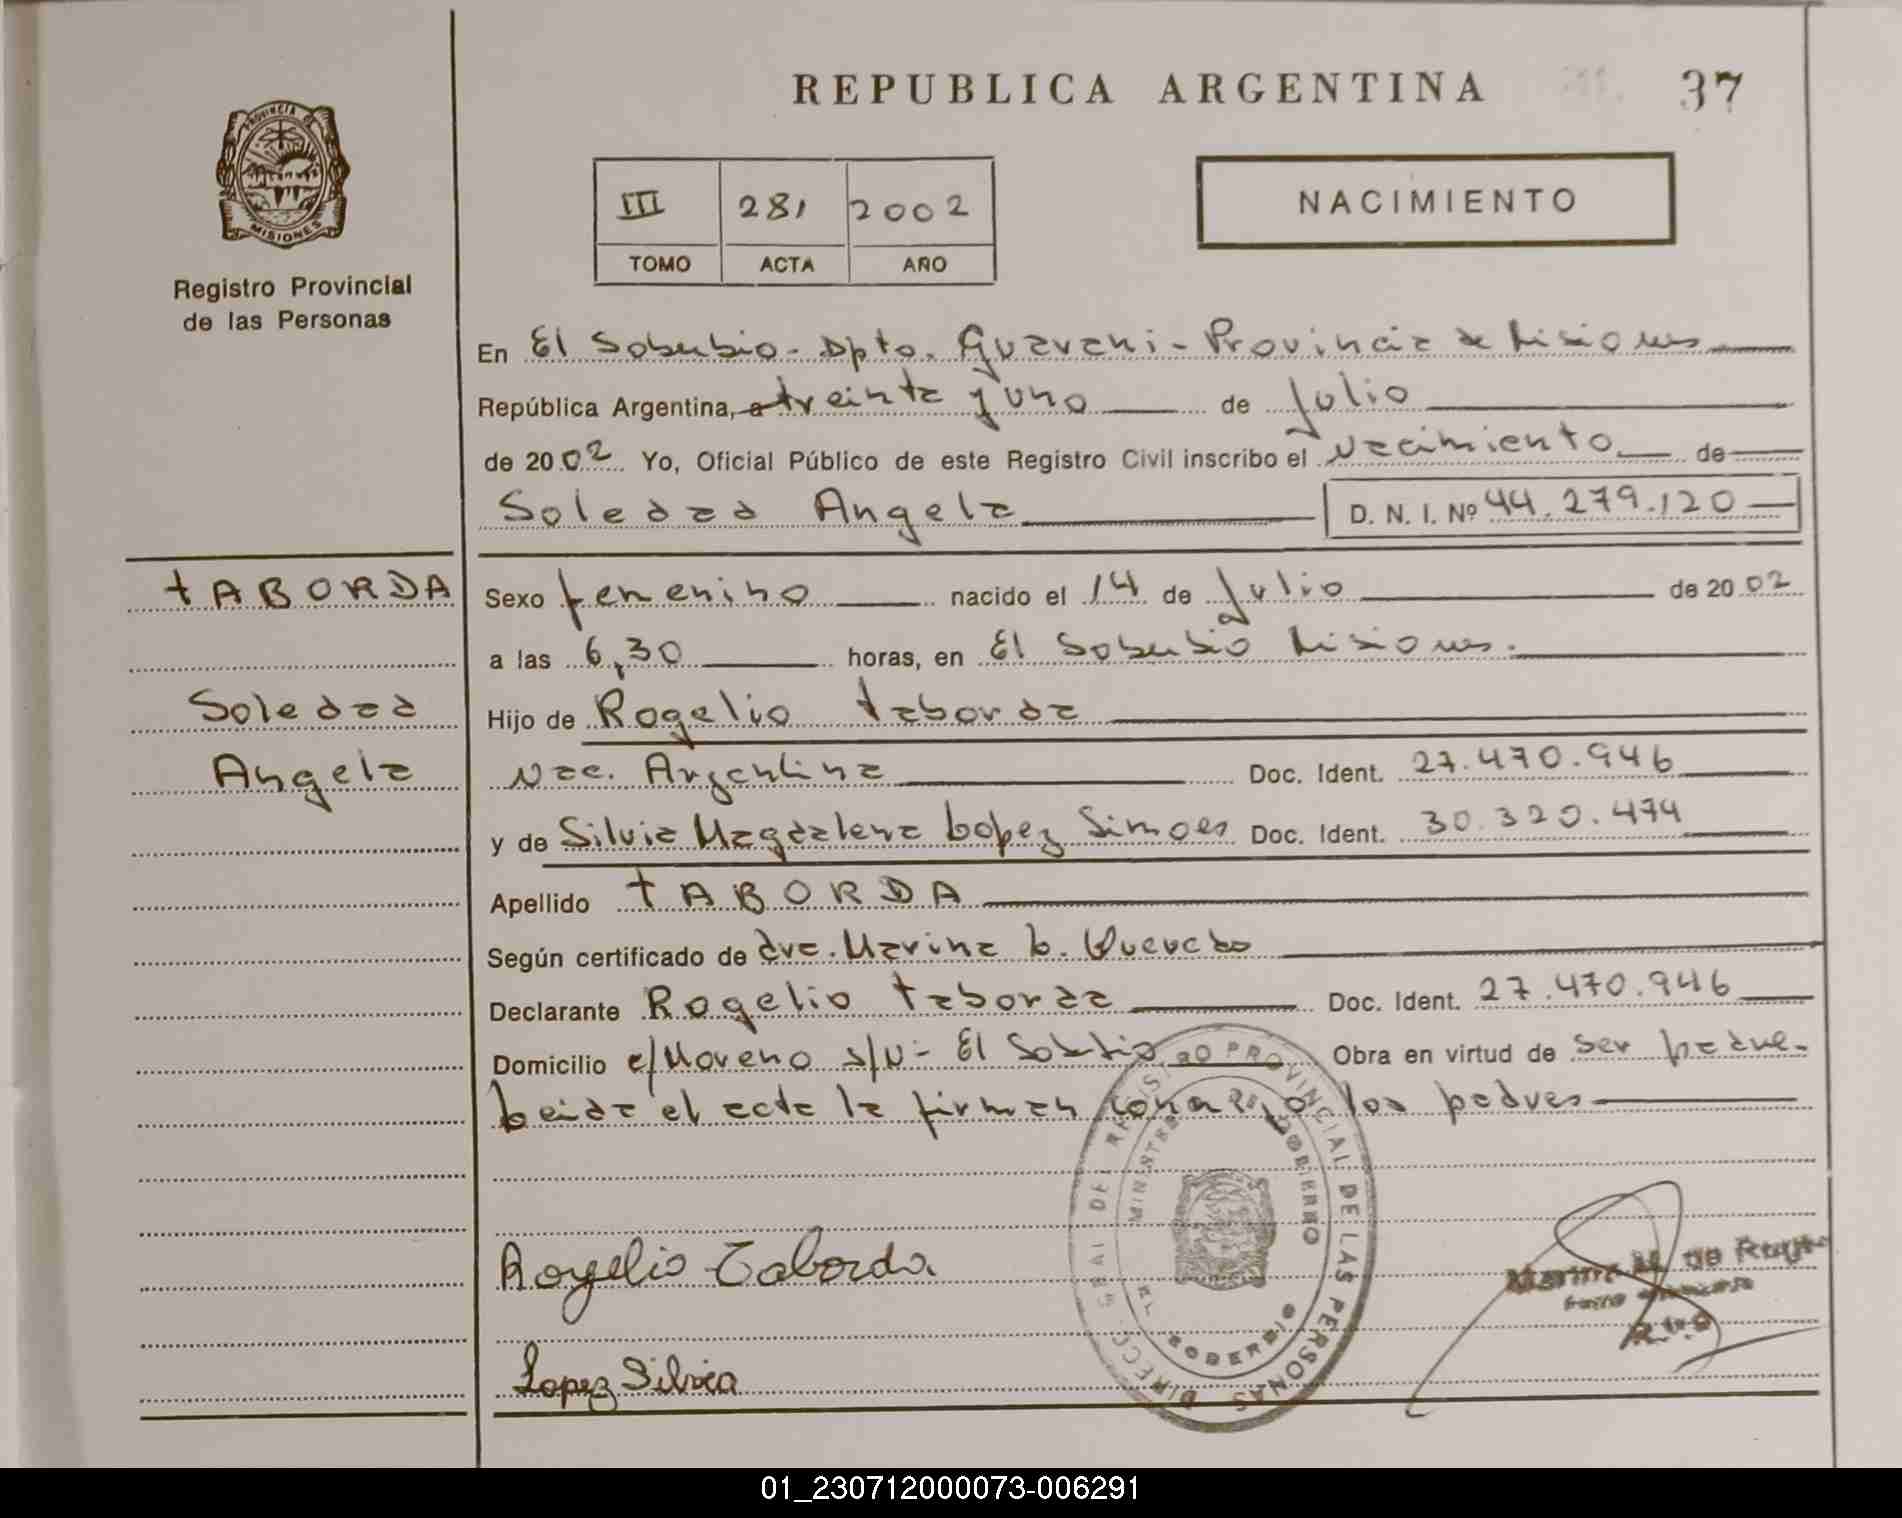 REPUBLICA ARGENTINA
37
PROVINCIA DE
MISIONES
Registro Provincial
de las Personas
III 281 2002
TOMO ACTA AÑO
NACIMIENTO
En El Soberbio - Dpto. Guarani - Provincia de Misiones
República Argentina, a treinta y uno de Julio
de 2002 Yo, Oficial Público de este Registro Civil inscribo el Nacimiento de
Soledad Angela D. N. I. Nº 44.279.120
TABORDA
Sexo femenino nacido el 14 de Julio de 2002
a las 6,30 horas, en El Soberbio Misiones.
Soledad
Hijo de Rogelio Taborda
Angela
Nac. Argentina Doc. Ident. 27.470.946
y de Silvia Magdalena Lopez Simoes Doc. Ident. 30.320.474
Apellido TABORDA
Según certificado de dra. Marina L.
Declarante Rogelio Taborda Doc. Ident. 27.470.946
Domicilio c/Moreno s/N- El Soberbio Obra en virtud de ser padre.
Leida el acta la firman conmigo los padres
DIRECC. GRAL DEL REGISTRO PROVINCIAL DE LAS PERSONAS
MINISTERIO DE GOBIERNO
EL SOBERBIO
Rogelio Taborda
Lopez Silvia
01_230712000073-006291